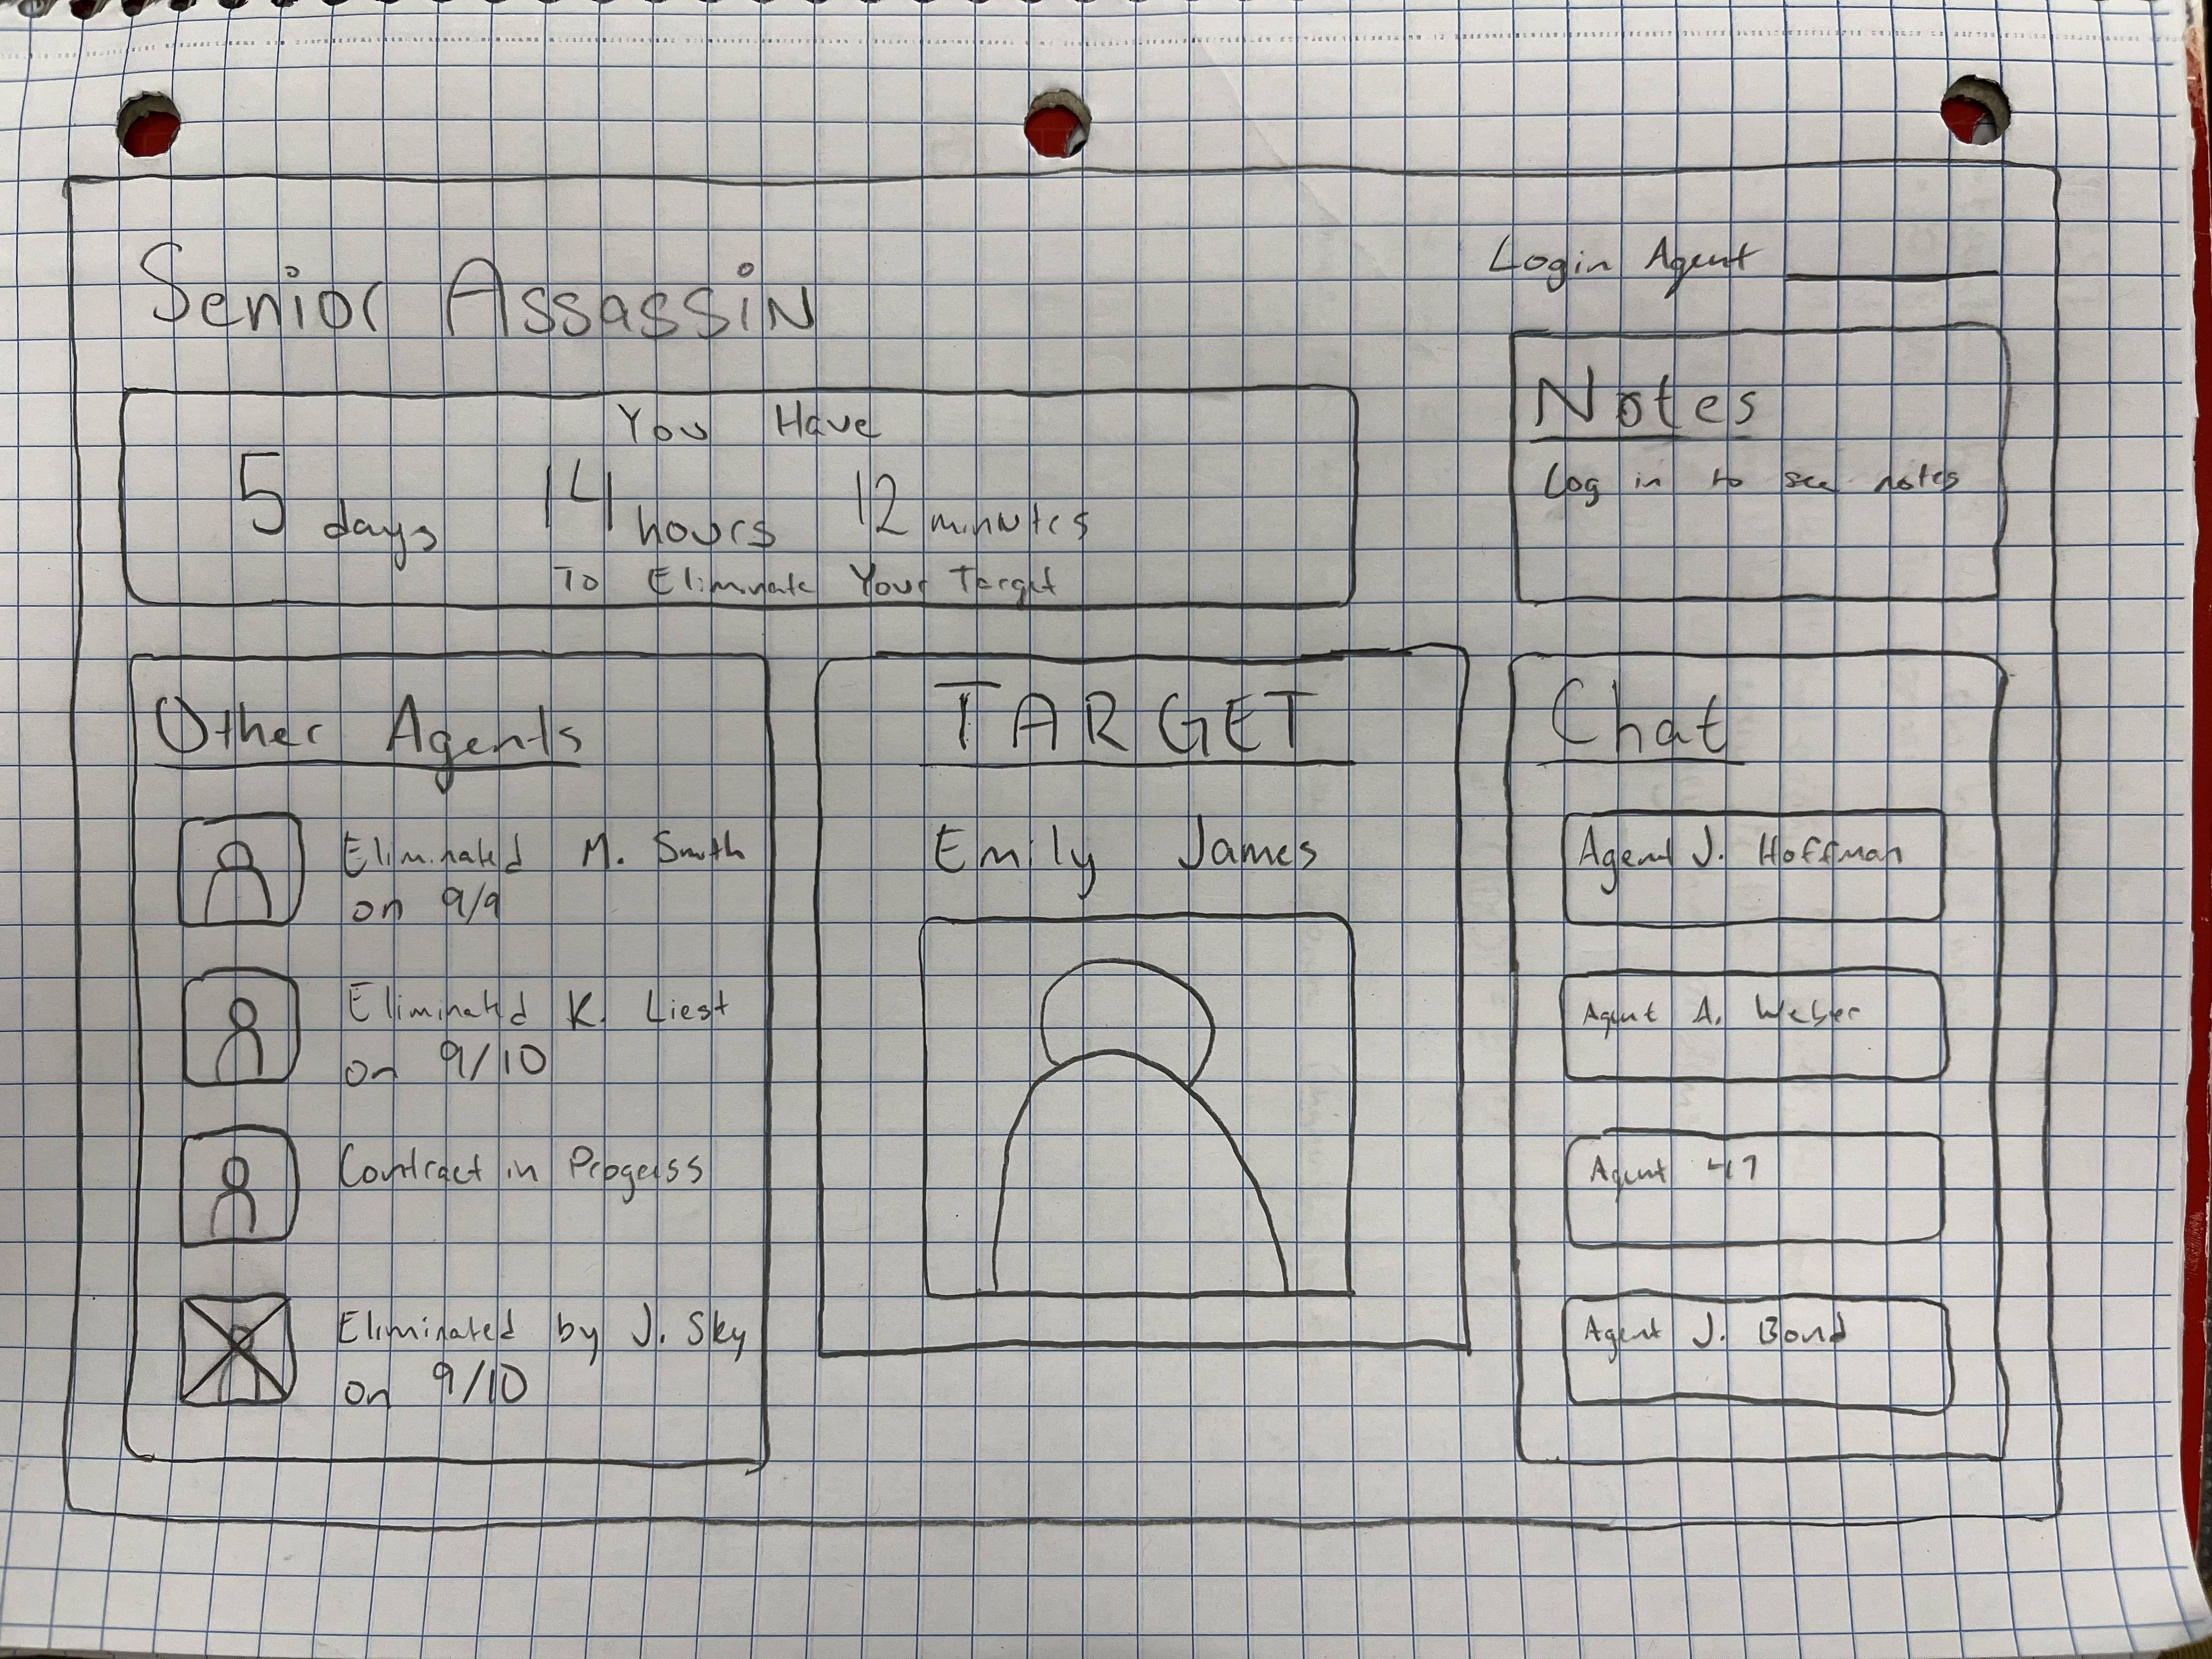 Senior Assassin
Login Agent
You Have
5 days 14 hours 12 minutes
To Eliminate Your Target
Notes
Log in to see notes
Other Agents
Eliminated M. Smith
on 9/9
Eliminated K. Liest
on 9/10
Contract in Progress
Eliminated by J. Sky
on 9/10
TARGET
Emily James
Chat
Agent J. Hoffman
Agent A. Weber
Agent 47
Agent J. Bond